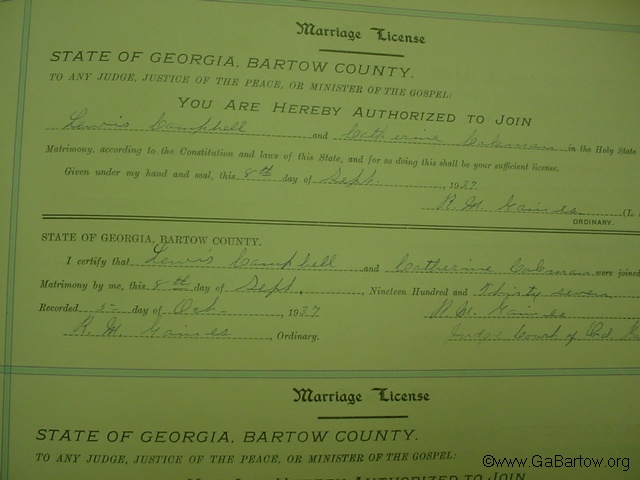 Marriage License
STATE OF GEORGIA, BARTOW COUNTY.
TO ANY JUDGE, JUSTICE OF THE PEACE, OR MINISTER OF THE GOSPEL:
YOU ARE HEREBY AUTHORIZED TO JOIN
Lewis Campbell and Catherine Coleman in the Holy State
Matrimony, according to the Constitution and laws of this State, and for so doing this shall be your sufficient license.
Given under my hand and seal, this 8th day of Sept. , 1937
R. M. Gaines (L.
ORDINARY.
STATE OF GEORGIA, BARTOW COUNTY.
I certify that Lewis Campbell and Catherine Coleman were joined
Matrimony by me, this 8th day of Sept. , Nineteen Hundred and Thirty seven
Recorded 5- day of Oct- , 1937 R. M. Gaines
R. M. Gaines , Ordinary. Judge Court of Ord.
Marriage License
STATE OF GEORGIA, BARTOW COUNTY.
TO ANY JUDGE, JUSTICE OF THE PEACE, OR MINISTER OF THE GOSPEL:
YOU ARE HEREBY AUTHORIZED TO JOIN
©www.GaBartow.org